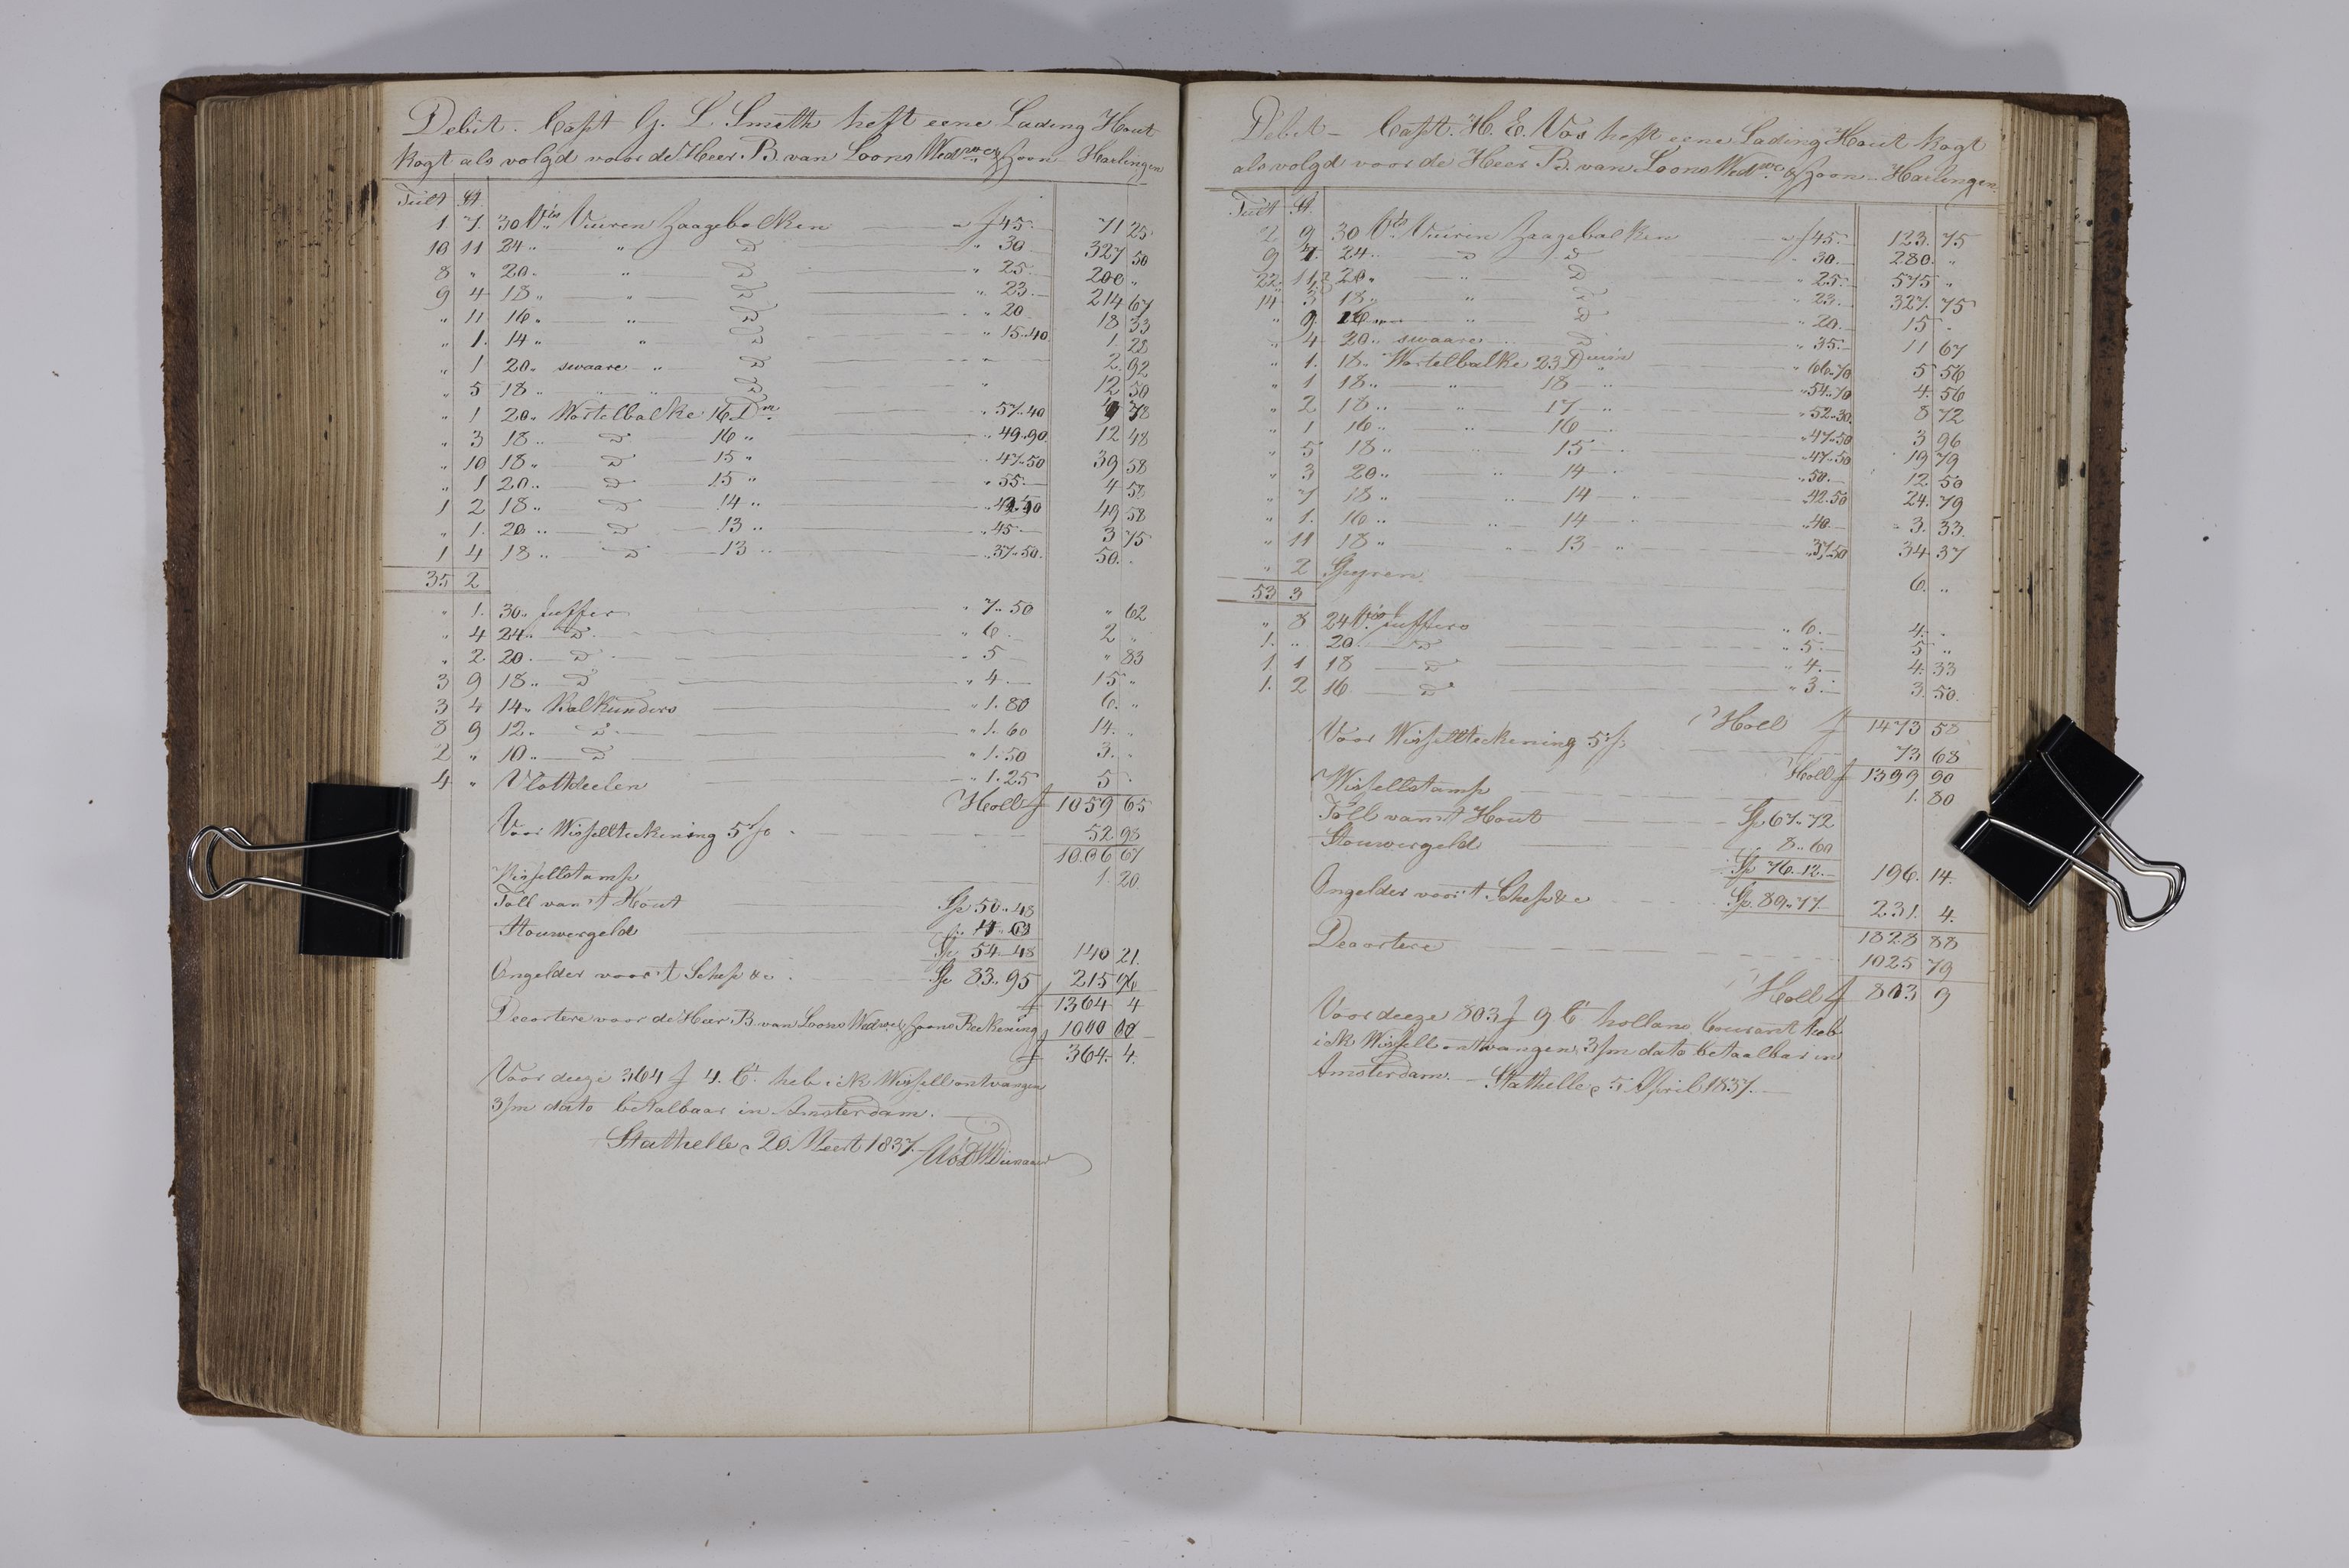 Debit. Capt G. L. Smith heft eene Lading Hout
kogt als volgd voor de Heer B. van Loons Wed.we & Zoon Harlingen
Tult St.
1 7 30 Vts Vuuren Zaagebalken f 45 71 25
10 11 24 " " D " 30 327 50
8 " 20 " " D " 25 200 "
9 4 18 " " D " 23 214 67
" 11 16 " " D " 20 18 33
" 1 14 " " D " 15.40 1 28
" 1 20 " swaare " D " 2 92
" 5 18 " " " D " 12 50
" 1 20 " Wortelbalke 16 Dm " 57.40 4 78
" 3 18 " D 16 " " 49.90 12 48
" 10 18 " D 15 " " 47.50 39 58
" 1 20 " D 15 " " 55 4 58
1 2 18 " D 14 " " 42.50 49 58
" 1 20 " D 13 " " 45 3 75
1 4 18 " D 13 " " 37.50 50 "
35 2
" 1 30 " Juffer " 7.50 " 62
" 4 24 " D " 6 2 "
" 2 20 " D " 5 " 83
3 9 18 " D " 4 15 "
3 4 14 " Balkunders " 1.80 6 "
8 9 12 " D " 1.60 14 "
2 " 10 " D " 1.50 3 "
4 " Vlotdeelen " 1.25 5 "
Holl f 1059 65
Voor Wisselltekening 5 % 52 98
1006 67
Wissellstamp 1 20
Toll van 't Hout Sp 50.48
Stouwergeld 4
Sp 54.48 140 21
Ongelder voor 't Schep &c Sp 83.95 215 96
f 1364 4
Decortere voor de Heer B. van Loons Wedwe & Zoons Reekening f 1000 00
f 364 4
Voor deeze 364 f 4 Ct. heb ik Wissell ontvangen
3/m dato betalbaar in Amsterdam.
Stathelle 20 Meert 1837.
Debit Capt. H. E. Vos heft eene Lading Hout kogt
als volgd voor de Heer B. van Loons Wed.we & Zoon Harlingen
Tult St.
2 9 30 Vts Vuuren Zaagebalken f 45 123 75
9 4 24 " D D " 30 280 "
22 11,2 20 " " D " 25 575 "
14 3 18 " " D " 23 327 75
" 9 16 " " D " 20 15 "
" 4 20 " swaare D " 35 11 67
" 1 18 " Wortelbalke 23 Duim " 66.70 5 56
" 1 18 " " 18 " " 54.70 4 56
" 2 18 " " 17 " " 52.30 8 72
" 1 16 " " 16 " 47.50 3 96
" 5 18 " " 15 " " 47.50 19 79
" 3 20 " " 14 " " 50 12 50
" 7 18 " " 14 " " 42.50 24 79
" 1 16 " " 14 " " 40 3 33
" 11 18 " " 13 " " 37.50 34 37
" 2 Speyren 6 "
53 3
" 8 24 Vts Juffers " 6 4 "
1 " 20 D " 5 5 "
1 1 18 D " 4 4 33
1 2 16 D " 3 3 50
Holl f 1473 58
Voor Wisselltekening 5 % 73 68
Holl f 1399 90
Wissellstamp 1 80
Toll van 't Hout Sp 67.72
Stouwergeld 8.60
Sp 76.12 196 14
Ongelder voor 't Schep &c Sp 89.77 231 4
1828 88
Decortere 1025 79
Holl f 803 9
Voor deeze 803 f 9 Ct hollans Courant heb
ik Wissell ontvangen 3/m dato betaalbar in
Amsterdam. Stathelle 5 April 1837.